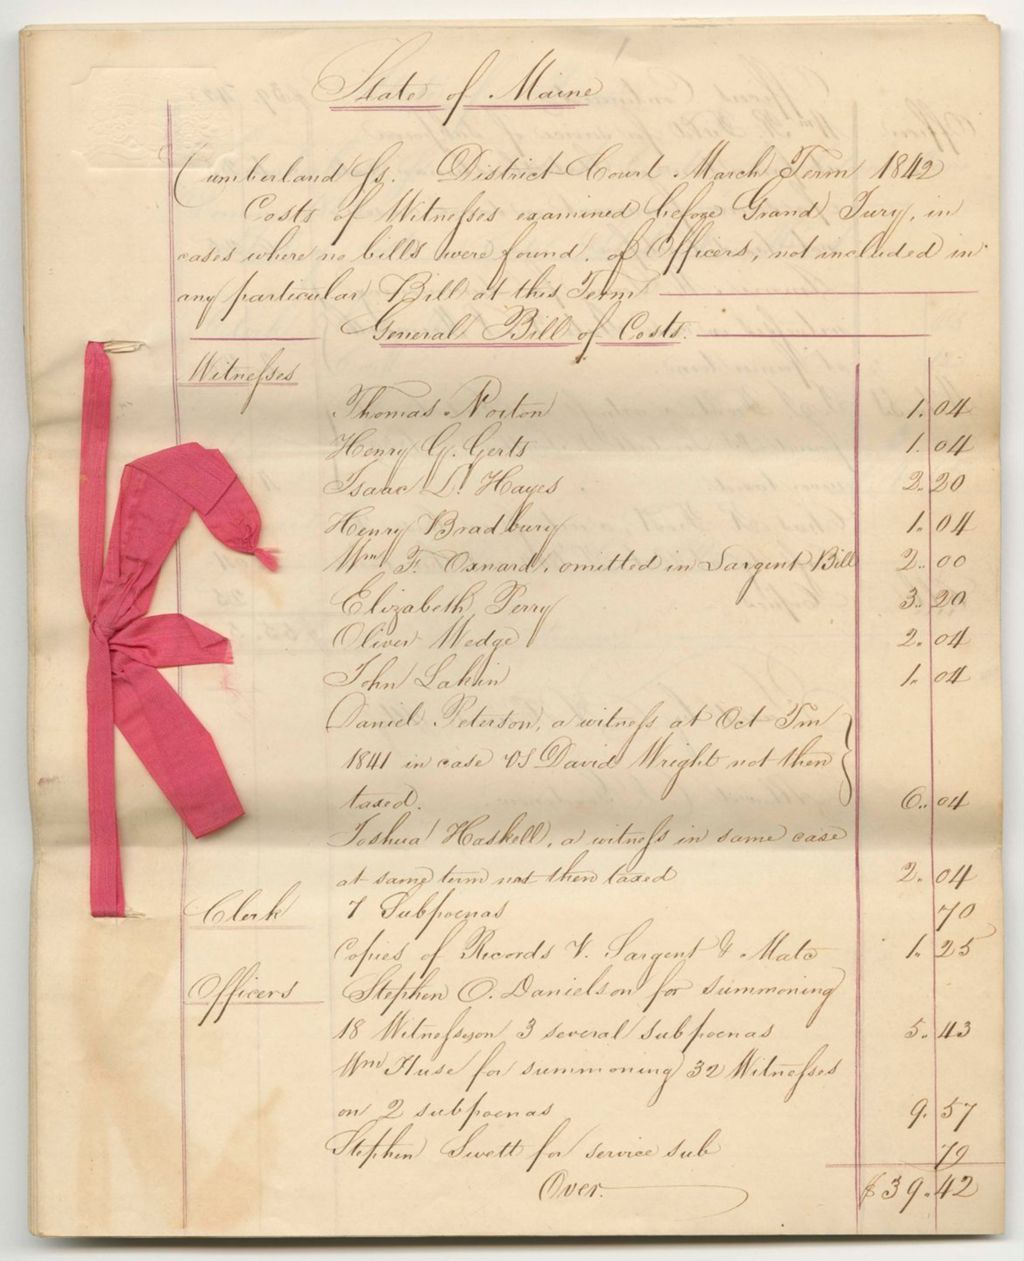 State of Maine
Cumberland Ss. District Court March Term 1842
Costs of Witnesses examined before Grand Jury, in
cases where no bills were found. of Officers, not included in
any particular Bill at this Term
General Bill of Costs.
Witnesses
Thomas Norton 1. 04
Henry G. Gerts 1. 04
Isaac L. Hayes 2. 20
Henry Bradbury 1. 04
Wm F. Oxnard, omitted in Sargent Bill 2. 00
Elizabeth Perry 3. 20
Oliver Wedge 2. 04
John Lakin 1. 04
Daniel Peterson, a witness at Oct Tm
1841 in case vs David Wright not then
taxed. 6. 04
Joshua Haskell, a witness in same case
at same term not then taxed 2. 04
Clerk 7 Subpoenas 70
Copies of Records V. Sargent & 1. 25
Officers Stephen O. Danielson for summoning
18 Witnesses on 3 several subpoenas 5. 43
Wm Huse for summoning 32 Witnesses
on 2 subpoenas 9. 57
Stephen Swett for service sub 79
Over. $39. 42